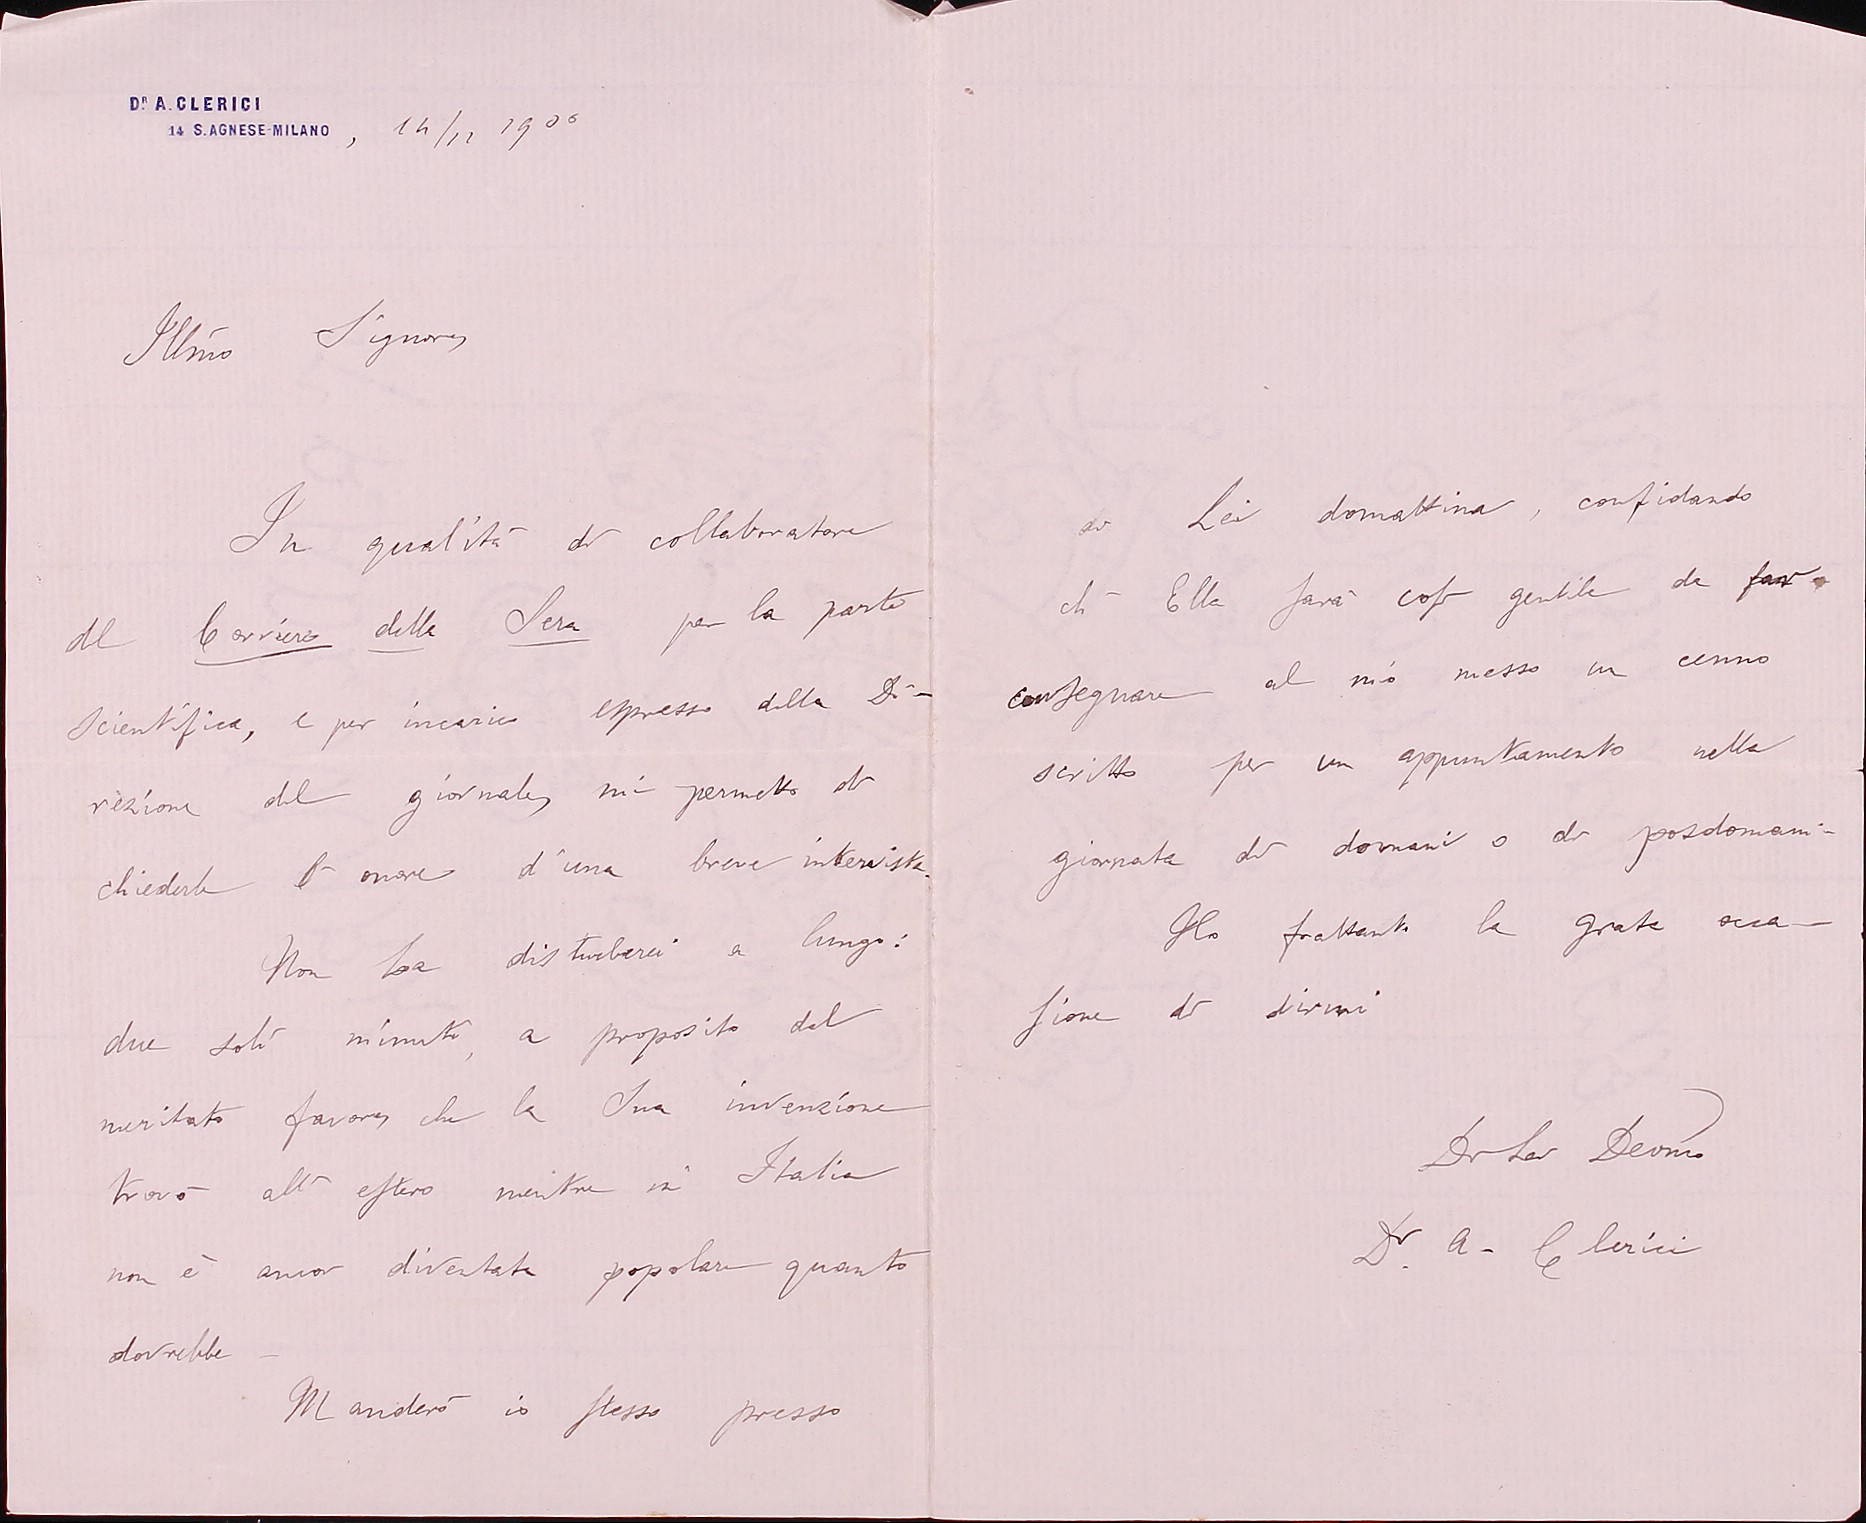 Dr A. CLERICI
14 S. AGNESE-MILANO, 14/12 1900
Illmo Signore,
In qualità di collaboratore
del Corriere della Sera per la parte
scientifica, e per incarico espresso della Di-
rezione del giornale, mi permetto di
chiederle l'onore d'una breve intervista.
Non La disturberei a lungo:
due soli minuti, a proposito del
meritato favore, che la Sua invenzione
trovò all'estero mentre in Italia
non è ancor diventata popolare quanto
dovrebbe -
Manderò io stesso presso
di Lei domattina, confidando
ch'Ella sarà così gentile da far
consegnare al mio messo un cenno
scritto per un appuntamento nella
giornata di domani o di posdomani -
Ho frattanto la grata occa-
sione di dirmi
Di Lei Devmo
Dr. A. Clerici